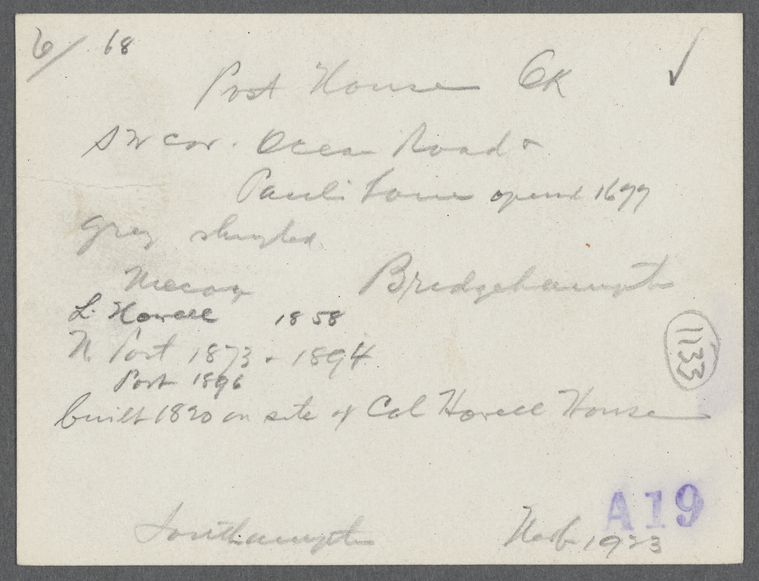 6/ 68
Post House OK ✓
SW cor. Ocean Road &
Paul's Lane opened 1699
Grey shingled
Mecox Bridgehampton
L. Howell 1858
N Post 1873 - 1894
Post 1896
1133
built 1820 on site of Col Howell House
A19
Southampton 1923